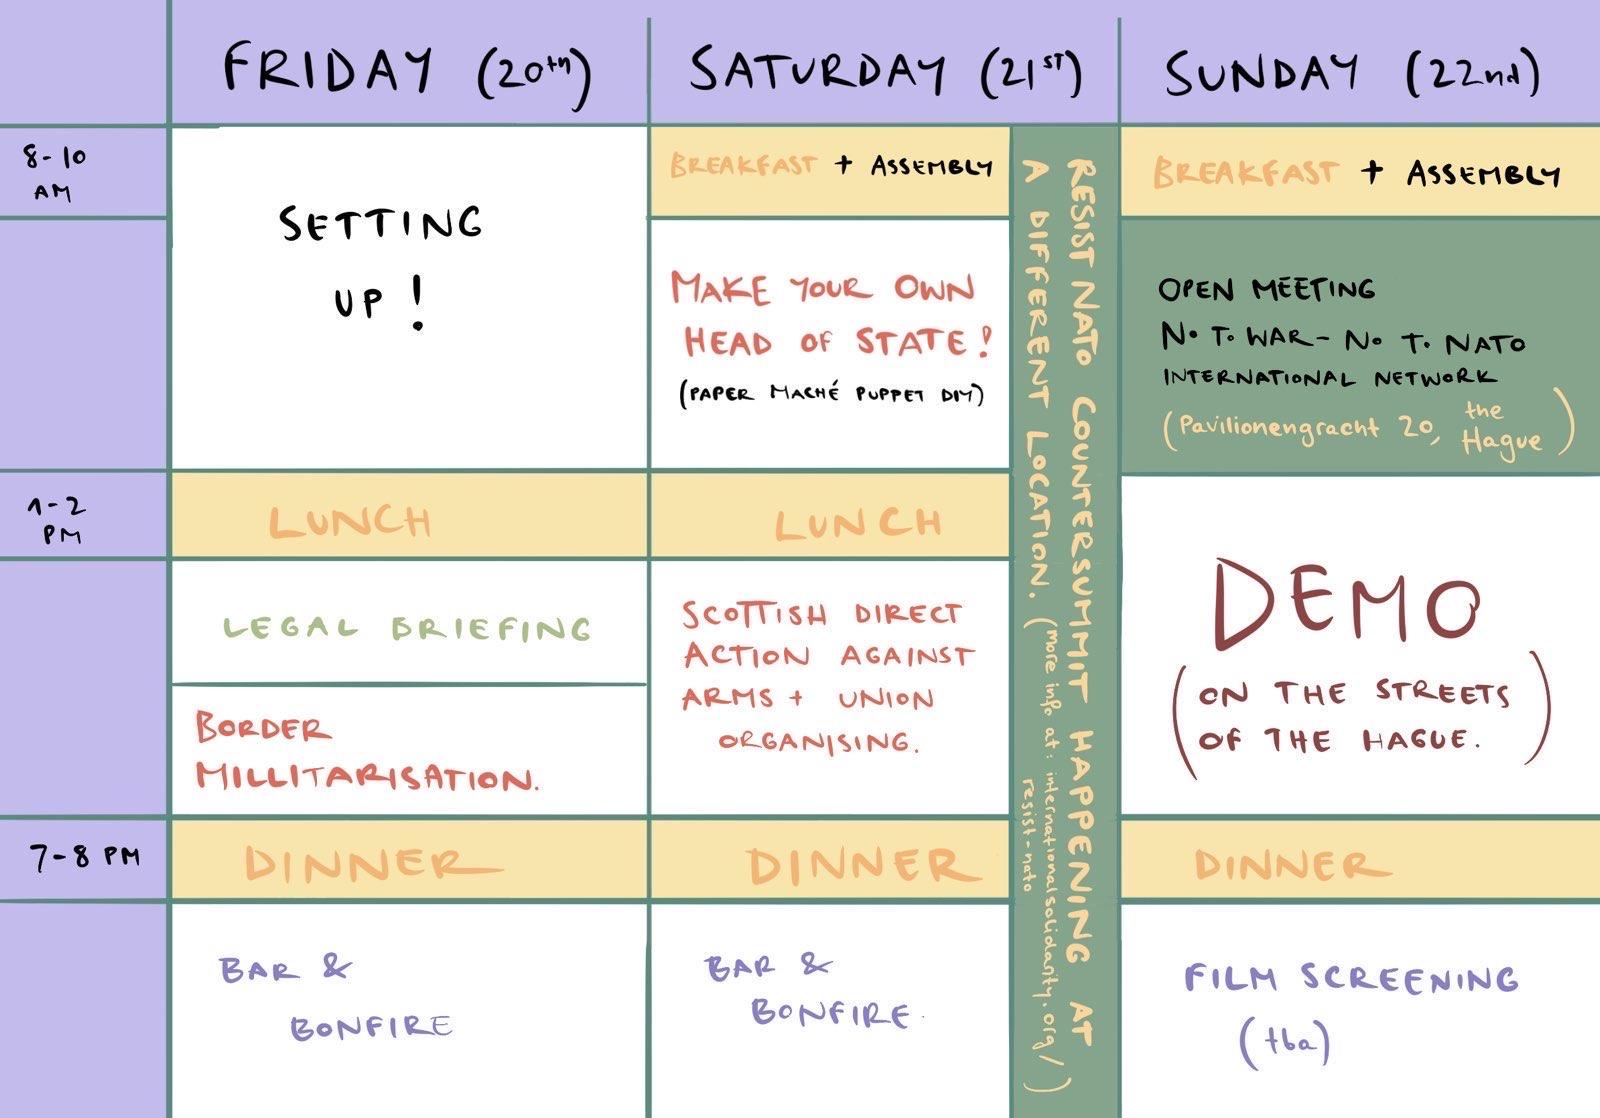 FRIDAY (20th)
SATURDAY (21ST)
SUNDAY (22nd)
8-10
AM
SETTING
UP!
BREAKFAST + ASSEMBLY
BREAKFAST + ASSEMBLY
MAKE YOUR OWN
HEAD OF STATE!
(PAPER MACHÉ PUPPET DIY)
OPEN MEETING
NO TO WAR - NO TO NATO
INTERNATIONAL NETWORK
(Pavilionengracht 20, the
Hague)
RESIST NATO COUNTERSUMMIT HAPPENING AT
A DIFFERENT LOCATION. (more info at: internationalsolidarity.org/
resist-nato)
1-2
PM
LUNCH
LUNCH
LEGAL BRIEFING
BORDER
MILLITARISATION.
SCOTTISH DIRECT
ACTION AGAINST
ARMS + UNION
ORGANISING.
DEMO
(ON THE STREETS
OF THE HAGUE.)
7-8 PM
DINNER
DINNER
DINNER
BAR &
BONFIRE
BAR &
BONFIRE.
FILM SCREENING
(tba)